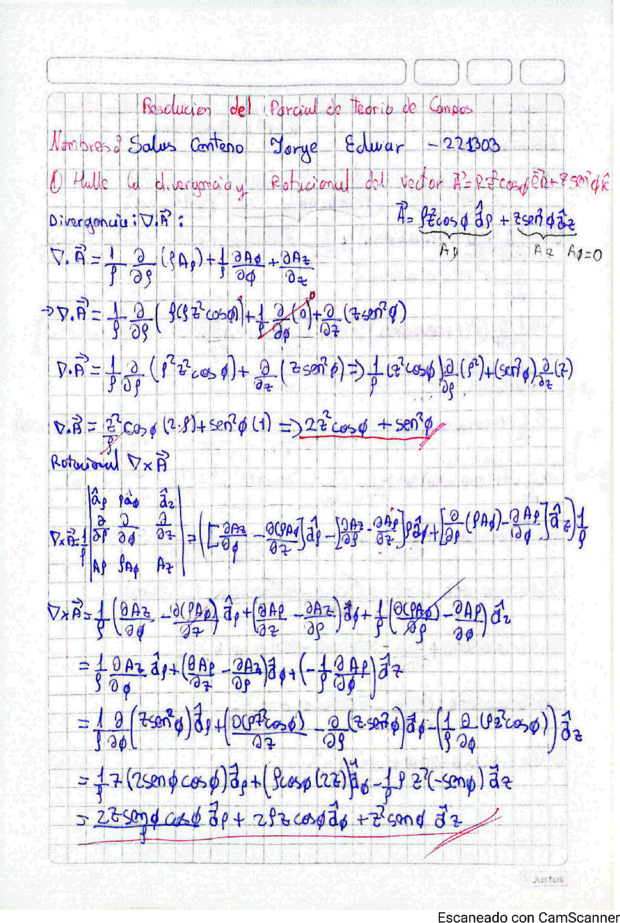 Resolucion del Parcial de Teoria de Campos
Nombres: Salas Conteno Jorge Edwar - 221303
① Halle la divergencia y Rotacional del vector A⃗ = Rz²cosϕ e⃗R + z sen²ϕ k̂
Divergencia: ∇.A⃗ :
A⃗ = ρz²cosϕ âρ + z sen²ϕ âz
Aρ Az Aϕ=0
∇.A⃗ = 1/ρ ∂/∂ρ (ρAρ) + 1/ρ ∂Aϕ/∂ϕ + ∂Az/∂z
→ ∇.A⃗ = 1/ρ ∂/∂ρ (ρ(ρz²cosϕ)) + 1/ρ ∂/∂ϕ (0) + ∂/∂z (z sen²ϕ)
∇.A⃗ = 1/ρ ∂/∂ρ (ρ²z²cosϕ) + ∂/∂z (z sen²ϕ) ⇒ 1/ρ (z²cosϕ) ∂/∂ρ (ρ²) + (sen²ϕ) ∂/∂z (z)
∇.A⃗ = z²/ρ cosϕ (2.ρ) + sen²ϕ (1) ⇒ 2z²cosϕ + sen²ϕ
Rotacional ∇×A⃗
∇×A⃗ = 1/ρ | âρ ρâϕ âz |
| ∂/∂ρ ∂/∂ϕ ∂/∂z |
| Aρ ρAϕ Az |
= ([∂Az/∂ϕ - ∂(ρAϕ)/∂z] âρ - [∂Az/∂ρ - ∂Aρ/∂z] ρâϕ + [∂/∂ρ (ρAϕ) - ∂Aρ/∂ϕ] âz) 1/ρ
∇×A⃗ = 1/ρ (∂Az/∂ϕ - ∂(ρAϕ)/∂z) âρ + (∂Aρ/∂z - ∂Az/∂ρ) âϕ + 1/ρ (∂(ρAϕ)/∂ρ - ∂Aρ/∂ϕ) âz
= 1/ρ ∂Az/∂ϕ âρ + (∂Aρ/∂z - ∂Az/∂ρ) âϕ + (-1/ρ ∂Aρ/∂ϕ) âz
= 1/ρ ∂/∂ϕ (z sen²ϕ) âρ + (∂(ρz²cosϕ)/∂z - ∂/∂ρ (z sen²ϕ)) âϕ - (1/ρ ∂/∂ϕ (ρz²cosϕ)) âz
= 1/ρ z (2senϕ cosϕ) âρ + (ρcosϕ (2z)) âϕ - 1/ρ ρ z² (-senϕ) âz
= 2z senϕ cosϕ/ρ âρ + 2ρz cosϕ âϕ + z² senϕ âz
Justus
Escaneado con CamScanner